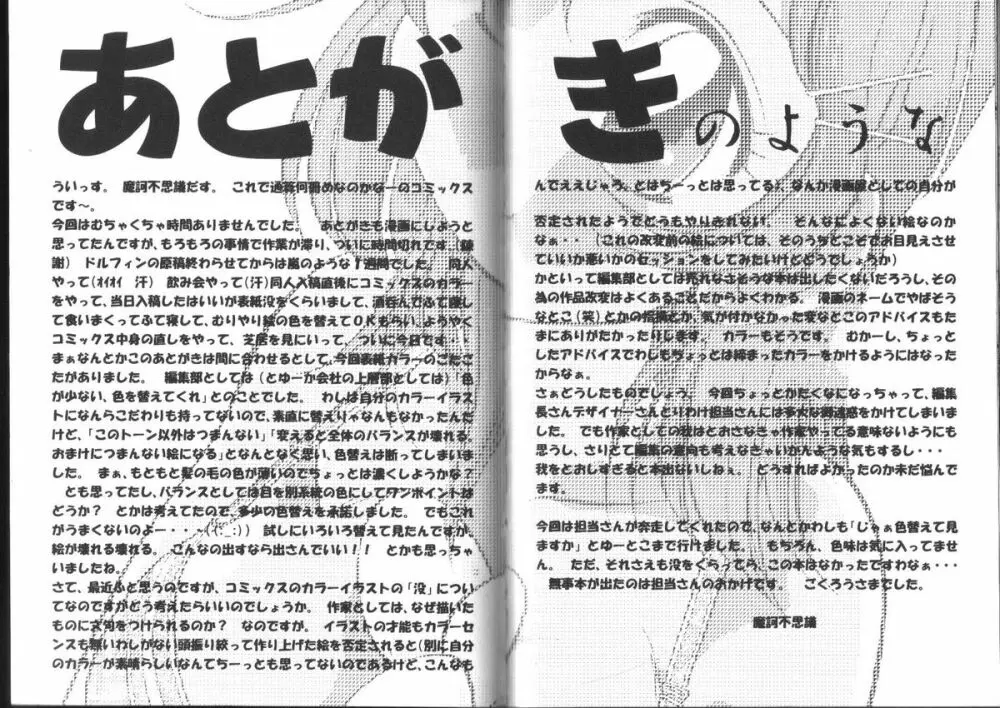 あとがきのような
ういっす。 魔訶不思議だす。 これで通算何冊めなのかなーのコミックス
です〜。
今回はむちゃくちゃ時間ありませんでした。 あとがきも漫画にしようと
思ってたんですが、もろもろの事情で作業が滞り、ついに時間切れです。(陳
謝) ドルフィンの原稿終わらせてからは嵐のような1週間でした。 同人
やって(オイオイ 汗) 飲み会やって(汗)同人入稿直後にコミックスのカラー
をやって、当日入稿したはいいが表紙没をくらいまして、酒呑んでふて寝して
食いまくってふて寝して、むりやり絵の色を替えてOKもらい、ようやく
コミックス中身の直しをやって、芝居を見にいって、ついに今日です・・・
まぁなんとかこのあとがきは間に合わせるとして、今回表紙カラーのごたご
たがありました。 編集部としては(とゆーか会社の上層部としては)「色
が少ない、色を替えてくれ」とのことでした。 わしは自分のカラーイラス
トになんらこだわりも持ってないので、素直に替えりゃなんもなかったんだ
けど、「このトーン以外はつまんない」「変えると全体のバランスが壊れる。
おまけにつまんない絵になる」となんとなく思い、色替えは断ってしまいま
した。 まぁ、もともと髪の毛の色が薄いのでちょっとは濃くしようかな?
とも思ってたし、バランスとしては目を別系統の色にしてワンポイントは
どうか? とかは考えてたので、多少の色替えを承諾しました。 でもこれ
がうまくないのよー・・・〜(-:_;)) 試しにいろいろ替えて見たんですが、
絵が壊れる壊れる。 こんなの出すなら出さんでいい!! とかも思っちゃ
いましたね。
さて、最近ふと思うのですが、コミックスのカラーイラストの「没」につい
てなのですがどう考えたらいいのでしょうか。 作家としては、なぜ描いた
ものに文句をつけられるのか? なのですが。 イラストの才能もカラーセ
ンスも無いわしがない頭振り絞って作り上げた絵を否定されると(別に自分
のカラーが素晴らしいなんてちーっとも思ってないのであるけど、こんなも
んでええじゃろ。とはちーっとは思ってる)、なんか漫画家としての自分が
否定されたようでどうもやりきれない。 そんなによくない絵なのか
なぁ・・・ (これの改変前の絵については、そのうちどこぞでお目見えさせ
ていいか悪いかのセッションをしてみたいけどどうでしょうか)
かといって編集部としては売れなさそうな本は出したくないだろうし、その
為の作品改変はよくあることだからよくわかる。 漫画のネームでやばそう
なとこ(笑)とかの指摘とか、気が付かなかった変なとこのアドバイスもた
まにありがたかったりします。 カラーもそうです。 むかーし、ちょっと
したアドバイスでわしもちょっとは締まったカラーをかけるようにはなった
からなぁ。
さぁどうしたものでしょう。 今回ちょっとかたくなになっちゃって、編集
長さんデザイナーさんとりわけ担当さんには多大な御迷惑をかけてしまいま
した。 でも作家としての我はとおさなきゃ作家やってる意味ないようにも
思うし、さりとて編集の意向も考えなきゃいかんような気もするし・・・
我をとおしすぎると本出ないしねぇ。 どうすればよかったのか未だ悩んで
ます。
今回は担当さんが奔走してくれたので、なんとかわしも「じゃぁ色替えて見
ますか」とゆーとこまで行けました。 もちろん、色味は気に入ってませ
ん。 ただ、それさえも没をくらってら、この本はなかったですわなぁ・・・
無事本が出たのは担当さんのおかげです。 ごくろうさまでした。
魔訶不思議